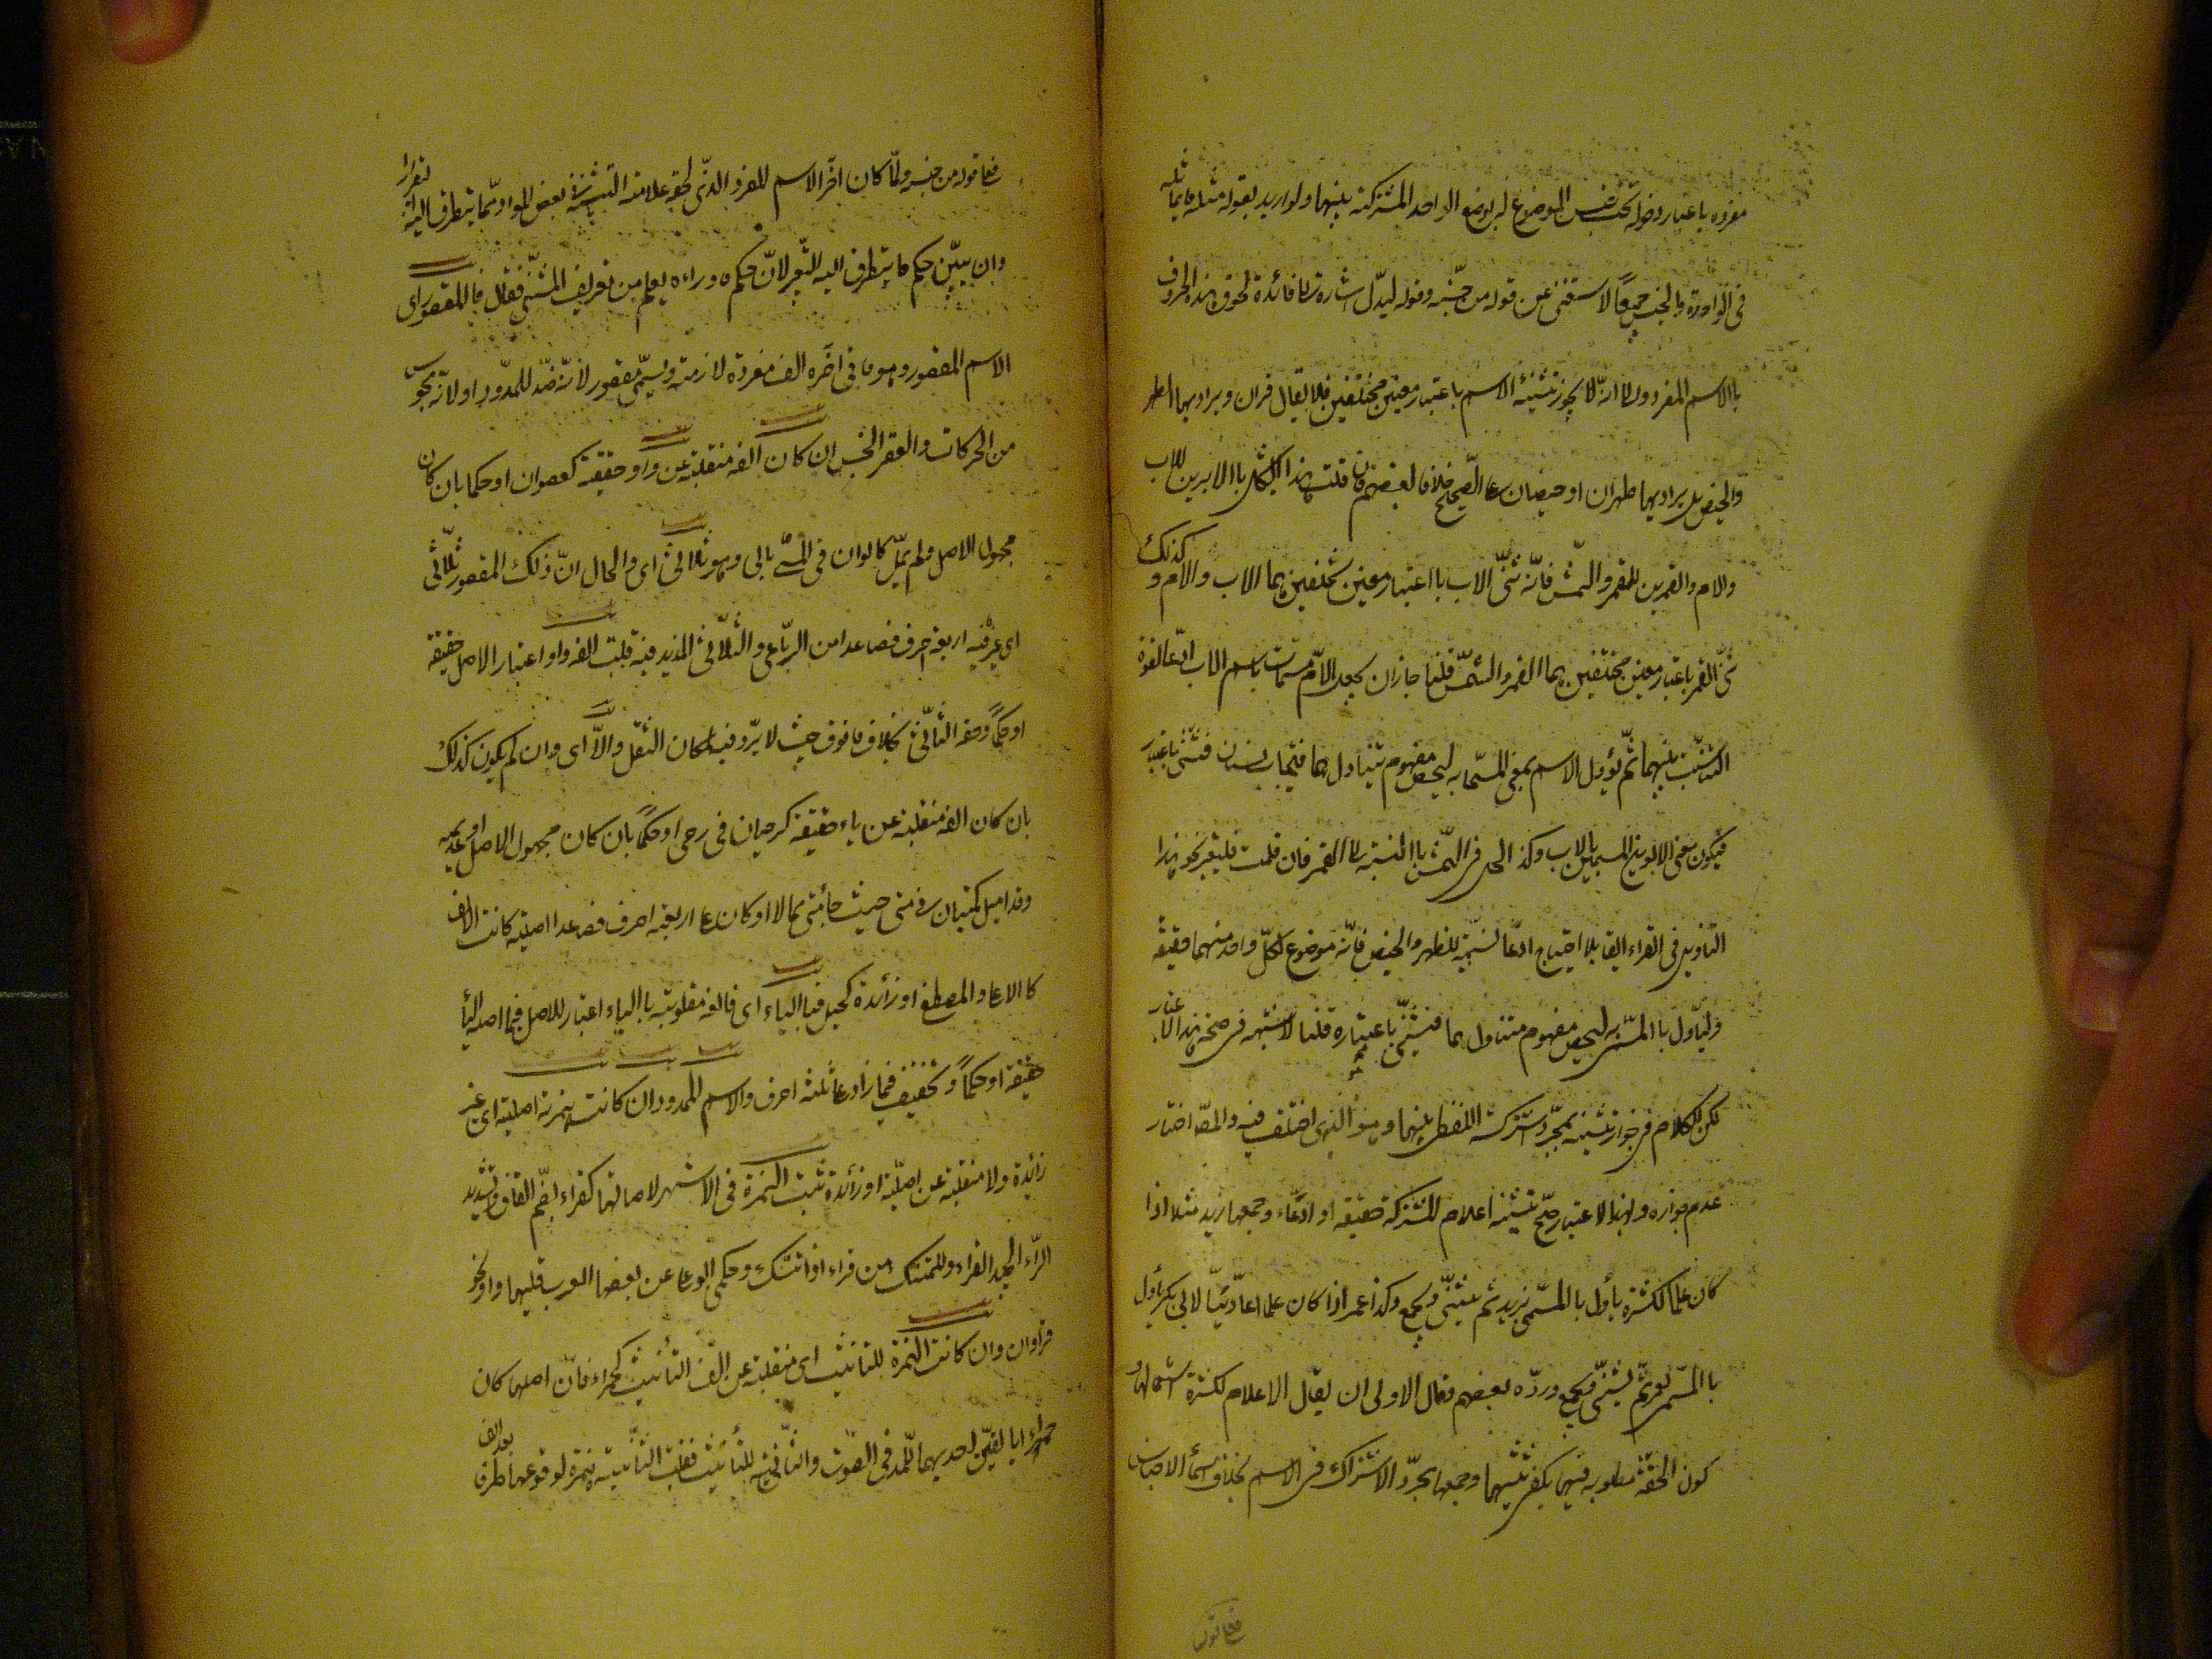 مفرده باعتبار دخوله تحت جنس الموضوع له بوضع الواحد المشتركة بينهما ولو اريد بقوله مثله ما يماثله
فى الواحدة والجنس جميعًا لاستغنى عن قوله من جنسه وقوله ليدل اشارة الى فائدة لحوق هذه الحروف
بالاسم المفرد والى انّه لا يجوز تثنية الاسم باعتبار معنيين مختلفين فلا يقال قران ويراد بهما الطهر
والحيض بل يراد بهما طهران او حيضان على الصّحيح خلافا لبعضهم فان قلت هذا يشكل بالابوين للاب
والام والقمرين للقمر والشمس فانّه ثنّى الاب باعتبار معنيين مختلفين هما الاب والام وكذلك
ثنّى القمر باعتبار معنيين مختلفين هما القمر والشمس قلنا جاز ان يجعل الام مسمّاة باسم الاب ادّعا لقوة
التناسب بينهما ثم يؤول الاسم بمعنى المسمّى به ليحصل مفهوم يتناولهما فيتجانسان فتثنى باعتباره
فيكون معنى الابوين المسمين بالاب وكذا الحال فى الشمس بالنسبة الى القمر فان قلت فليعتبر نحو هذا
التاويل فى القراء ايضا بلا احتياج ادّعا تسمية للطهر والحيض فانّه موضوع لكلّ واحد منهما حقيقة
وليأوّل بالمسمّى به ليحصل مفهوم متناول لهما فيثنّى باعتباره قلنا لا شبهة فى صحة هذا الاعتبار
لكن الكلام فى جواز تثنية بمجرّد اشتراكه اللفظى بينهما وهو الذى اختلف فيه والمصّ اختار
عدم جوازه ولهذا الاعتبار صحّ تثنية اعلام المشتركة حقيقة او ادّعاء وجمعها زيد مثلا اذا
كان علما لكثيرة يأول بالمسمّى بزيد ثم يثنّى ويجمع وكذا عمر اذا كان علما ادّعائيًا لابى بكر يأول
بالمسمّى بعمر ثم يثنّى ويجمع وردّه بعضهم وقال الاولى ان يقال الاعلام لكثرة استعمالها و
كون الخفّة مطلوبة فيها يكفى تثنيتها وجمعها بمجرّد الاشتراك فى الاسم بخلاف اسماء الاجناس
فعلى قوله من جنسه ولمّا كان آخر الاسم المفرد الذى لحقه علامة التثنية فى بعض المواد ممّا يتطرق اليه تغير اراد
وان يبيّن حكم ما يتطرق اليه التّغير لانّ حكم ما وراءه يعلم من تعريف المثنّى فقال فالمقصور اى
الاسم المقصور وهو ما فى آخره الف مفردة لازمة ويسمّى مقصور لانّه ضدّ الممدود او لانّه محبوس
من الحركات والقصر الحبس ان كان الفه منقلبة عن واو حقيقة كعصوان او حكما بان كان
مجهول الاصل ولم يمل كالوان فى المسمّى بالى وهو ثلاثى اى والحال انّ ذلك المقصور ثلاثى
اى غير فيه اربعة احرف فصاعدا من الرباعى والثلاثى المزيد فيه قلبت الفه واوا اعتبار الاصل حقيقة
او حكمًا وخفة الثلاثى بخلاف ما فوق حيث لا يردّ فيه لمكان الثقل والاّ اى وان لم يكون كذلك
بان كان الفه منقلبة عن ياء حقيقة كرحيان فى رحى او حكمًا بان كان مجهول الاصل او عديمه
وقد اميل كمتيان فى متى حيث جاء متى ممالا او كان على اربعة احرف فصاعدا اصلية كانت الالف
كالاعلى والمصطفى او زائدة كحبلى فبالياء اى فالفه مقلوبة بالياء اعتبار للاصل فيما اصله الياء
حقيقة او حكمًا وتخفيف فيما زاد على ثلثة احرف والاسم الممدود ان كانت همزته اصلية اى غير
زائدة ولا منقلبة عن اصليّة او زائدة تثبت الهمزة فى الاشهر لاصالتها كقراء بضم القاف وتشديد
الرّاء الجيد القراءة وللمتنسّك من قراء اذا تنسّك وحكى ابو على عن بعض العرب قلبها واوا نحو
قراوان وان كانت الهمزة للتأنيث اى منقلبة عن الف التأنيث كحمراء فانّ اصلها كان
حمراا بالفين احديهما للمد فى الصوت والثانية للتأنيث فقلبت الثانية همزة لوقوعها طرفا بعد الف
فعلى قوله